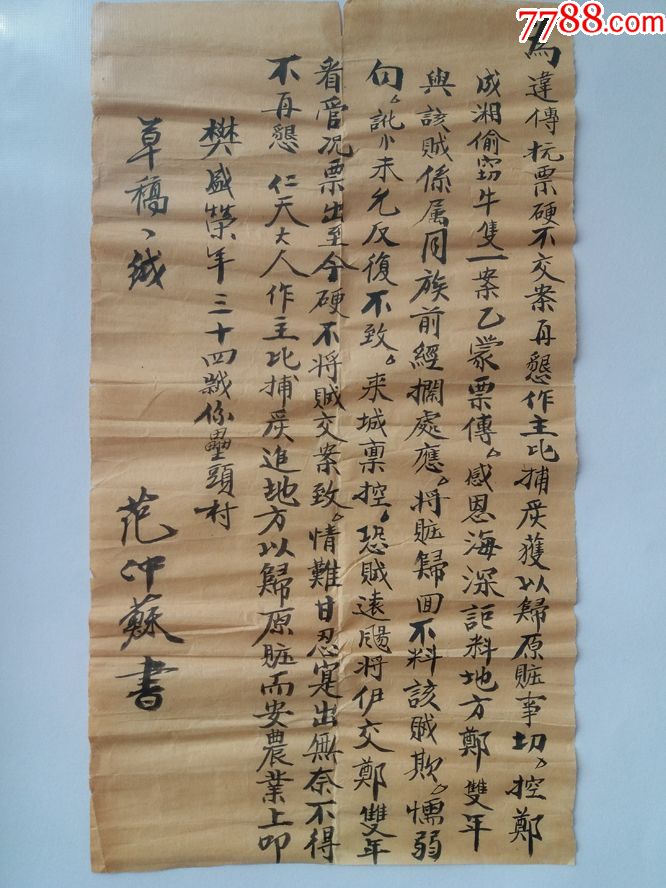 7788.com
為違傳抗票硬不交案再懇作主比捕戾獲以歸原賍事切控鄭
成湘偷窃牛隻一案乙蒙票傳感恩海深詎料地方鄭雙年
與該賊係属同族前經攔處應将賍歸回不料該賊欺懦弱
訛小未允反復不致来城稟控恐賊遠颺将伊交鄭雙年
看管况票出至今硬不将賊交案致情難甘忍寔出無奈不得
不再懇 仁天大人作主比捕戾追地方以歸原賍而安農業上叩
樊盛榮年三十四歲係壘頭村
草稿、
范仲蘇書